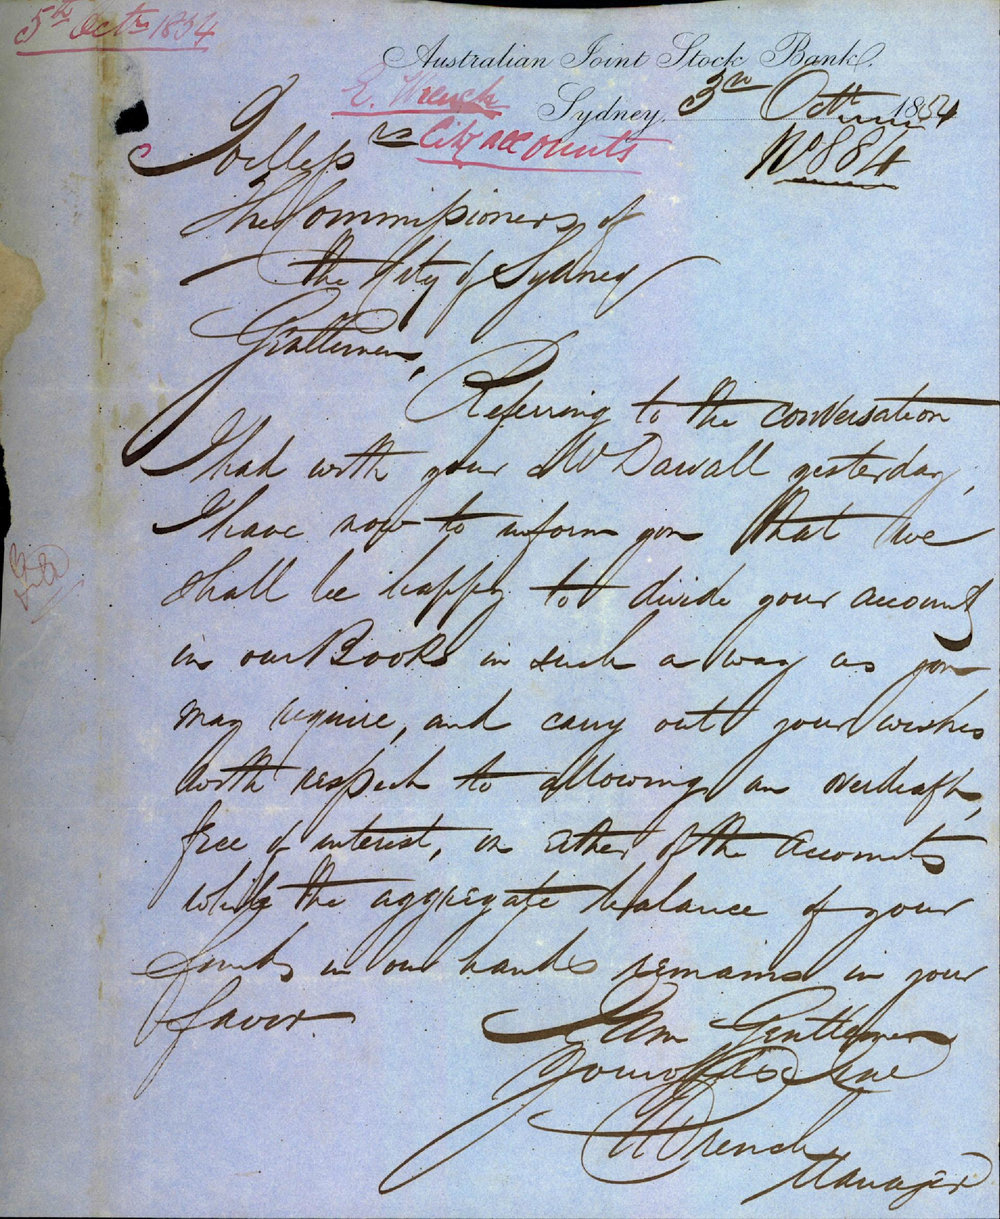 5th Octr 1854
Australian Joint Stock Bank.
E. Wrench
Sydney, 3rd Octr 1854
re City accounts
No 884
The Commissioners of
the City of Sydney
Gentlemen,
Referring to the conversation
I had with your Mr Darvall yesterday,
I have now to inform you that we
shall be happy to divide your account
in our Books in such a way as you
may require, and carry out your wishes
with respect to allowing an overdraft,
free of interest, on either of the accounts
while the aggregate balance of your
funds in our hands remains in your
favor.
I am Gentlemen
Your obt Serv
E Wrench
Manager